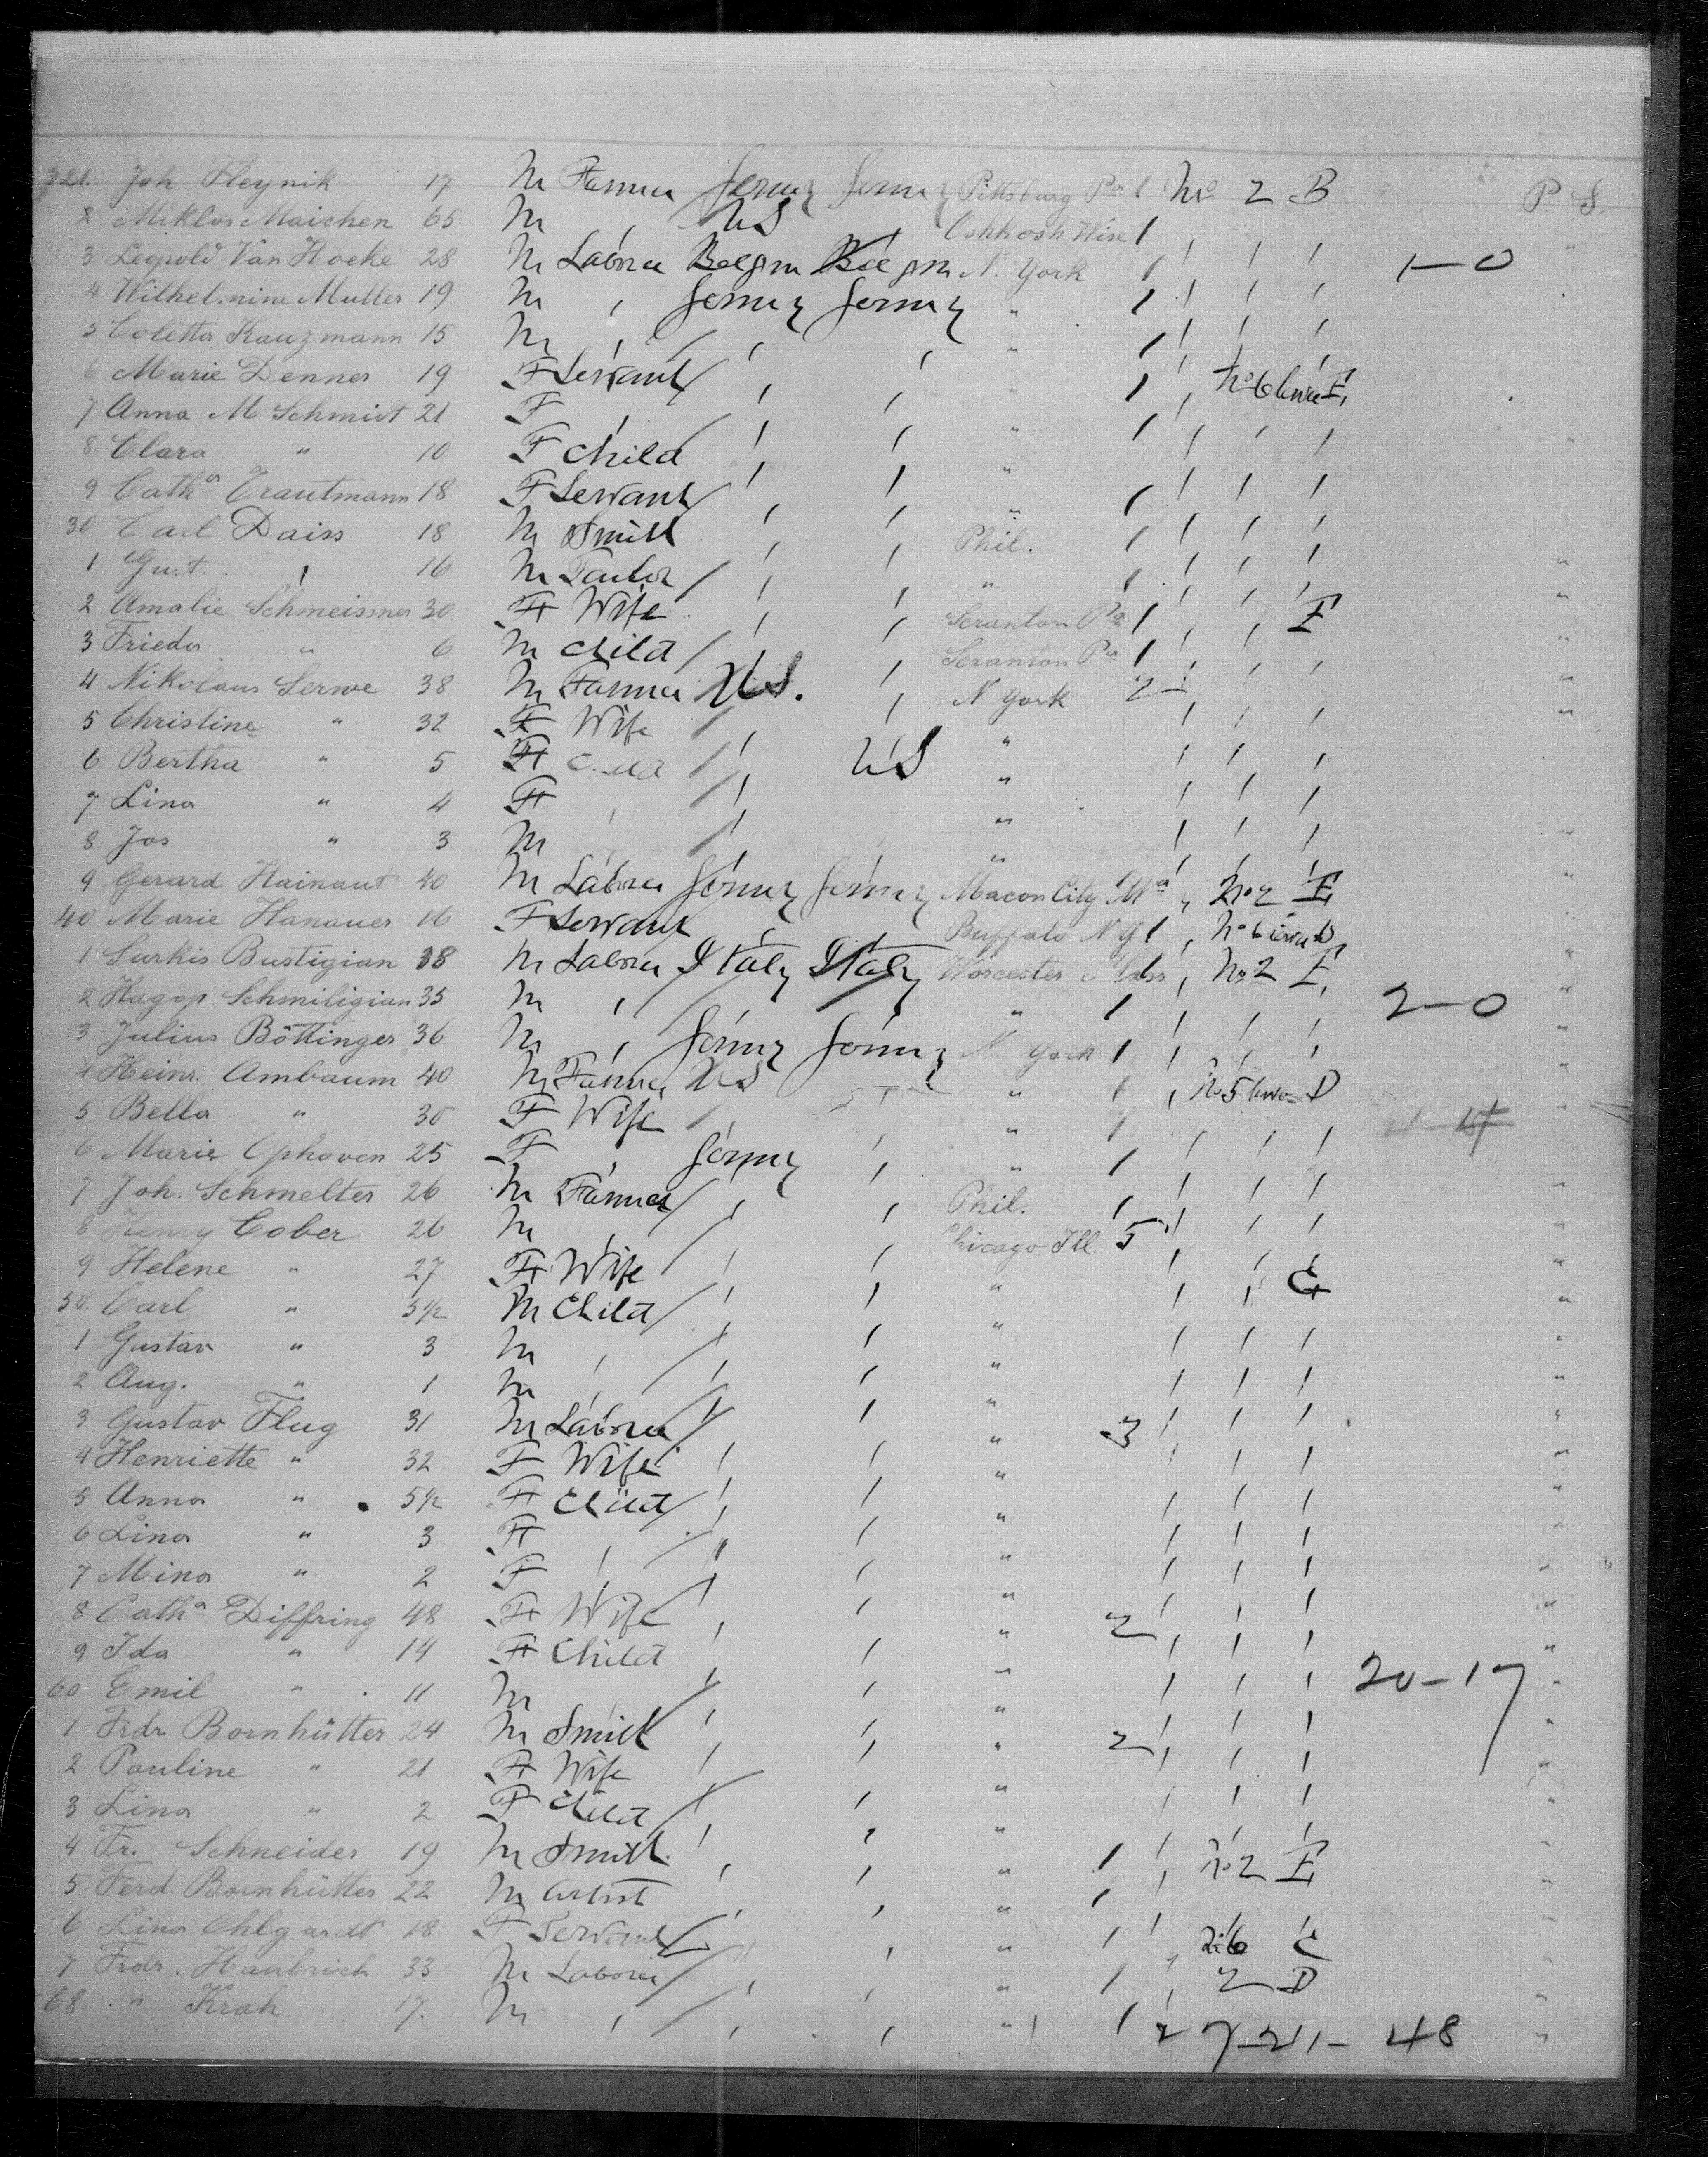 721. Joh Heynik 17 M Farmer Germy Germy Pittsburg Pa 1 No 2 B P. S.
2 Miklos Maichen 65 M " US " Oshkosh Wisc 1 "
3 Leopold Van Hoeke 28 M Laborer Belgm Belgm N. York 1 1—0
4 Wilhelmine Muller 19 M " Germy Germy " 1
5 Coletta Kauzmann 15 M " " " " 1
6 Marie Denner 19 F Servant " " " 1 " No 6 E
7 Anna M Schmidt 21 F " " " " 1
8 Clara " 10 F Child " " "
9 Catha Trautmann 18 F Servant " " " 1
30 Carl Daiss 18 M Smith " " Phil. 1
1 Gust. " 16 M Tailor " " " 1
2 Amalie Schmeisner 30 F Wife " " Scranton Pa 1 " " E
3 Frieda " 6 M Child " " Scranton Pa 1
4 Nikolaus Serwe 38 M Farmer U.S. " N York 2
5 Christine " 32 F Wife " " "
6 Bertha " 5 F Child " US "
7 Lina " 4 F " " "
8 Jos " 3 M " " "
9 Gerard Hainaut 40 M Laborer Germy Germy Macon City Mo " No 2 E
40 Marie Hanauer 16 F Servant " " Buffalo N Y 1 " No 6 D
1 Surkis Bustigian 38 M Laborer Italy Italy Worcester Mass " No 2 E
2 Hagop Schmiligian 35 M " " " " 1 2—0
3 Julius Böttinger 36 M " Germy Germy N. York 1
4 Heinr. Ambaum 40 M Farmer US " " 1 " No 5 D
5 Bella " 30 F Wife " " 1
6 Marie Ophoven 25 F " Germy " " 1
7 Joh. Schmelter 26 M Farmer " " Phil. 1
8 Henry Cober 26 M " " " Chicago Ill 5
9 Helene " 27 F Wife " " " " " G
50. Carl " 5½ M Child " " "
1 Gustav " 3 M " " " "
2 Aug. " 1 M " " " "
3 Gustav Flug 31 M Laborer " " " 3
4 Henriette " 32 F Wife " " "
5 Anna " 5½ F Child " " "
6 Lina " 3 F " " " "
7 Mina " 2 F " " " "
8 Catha Diffring 48 F Wife " " " 2
9 Ida " 14 F Child " " "
60 Emil " 11 M " " " 20—17
1 Frdr Bornhütter 24 M Smith " " " 2
2 Pauline " 21 F Wife " " "
3 Lina " 2 F Child " " "
4 Fr. Schneider 19 M Smith " " " 1 " No 2 E
5 Ferd Bornhütter 22 M Artist " " " 1
6 Lina Ohlgardt 18 F Servant " " " 1 " 6 C
7 Frdr. Haubrich 33 M Laborer " " " 1 " 2 D
68. " Krah 17. M " " " " 1 27—21—48